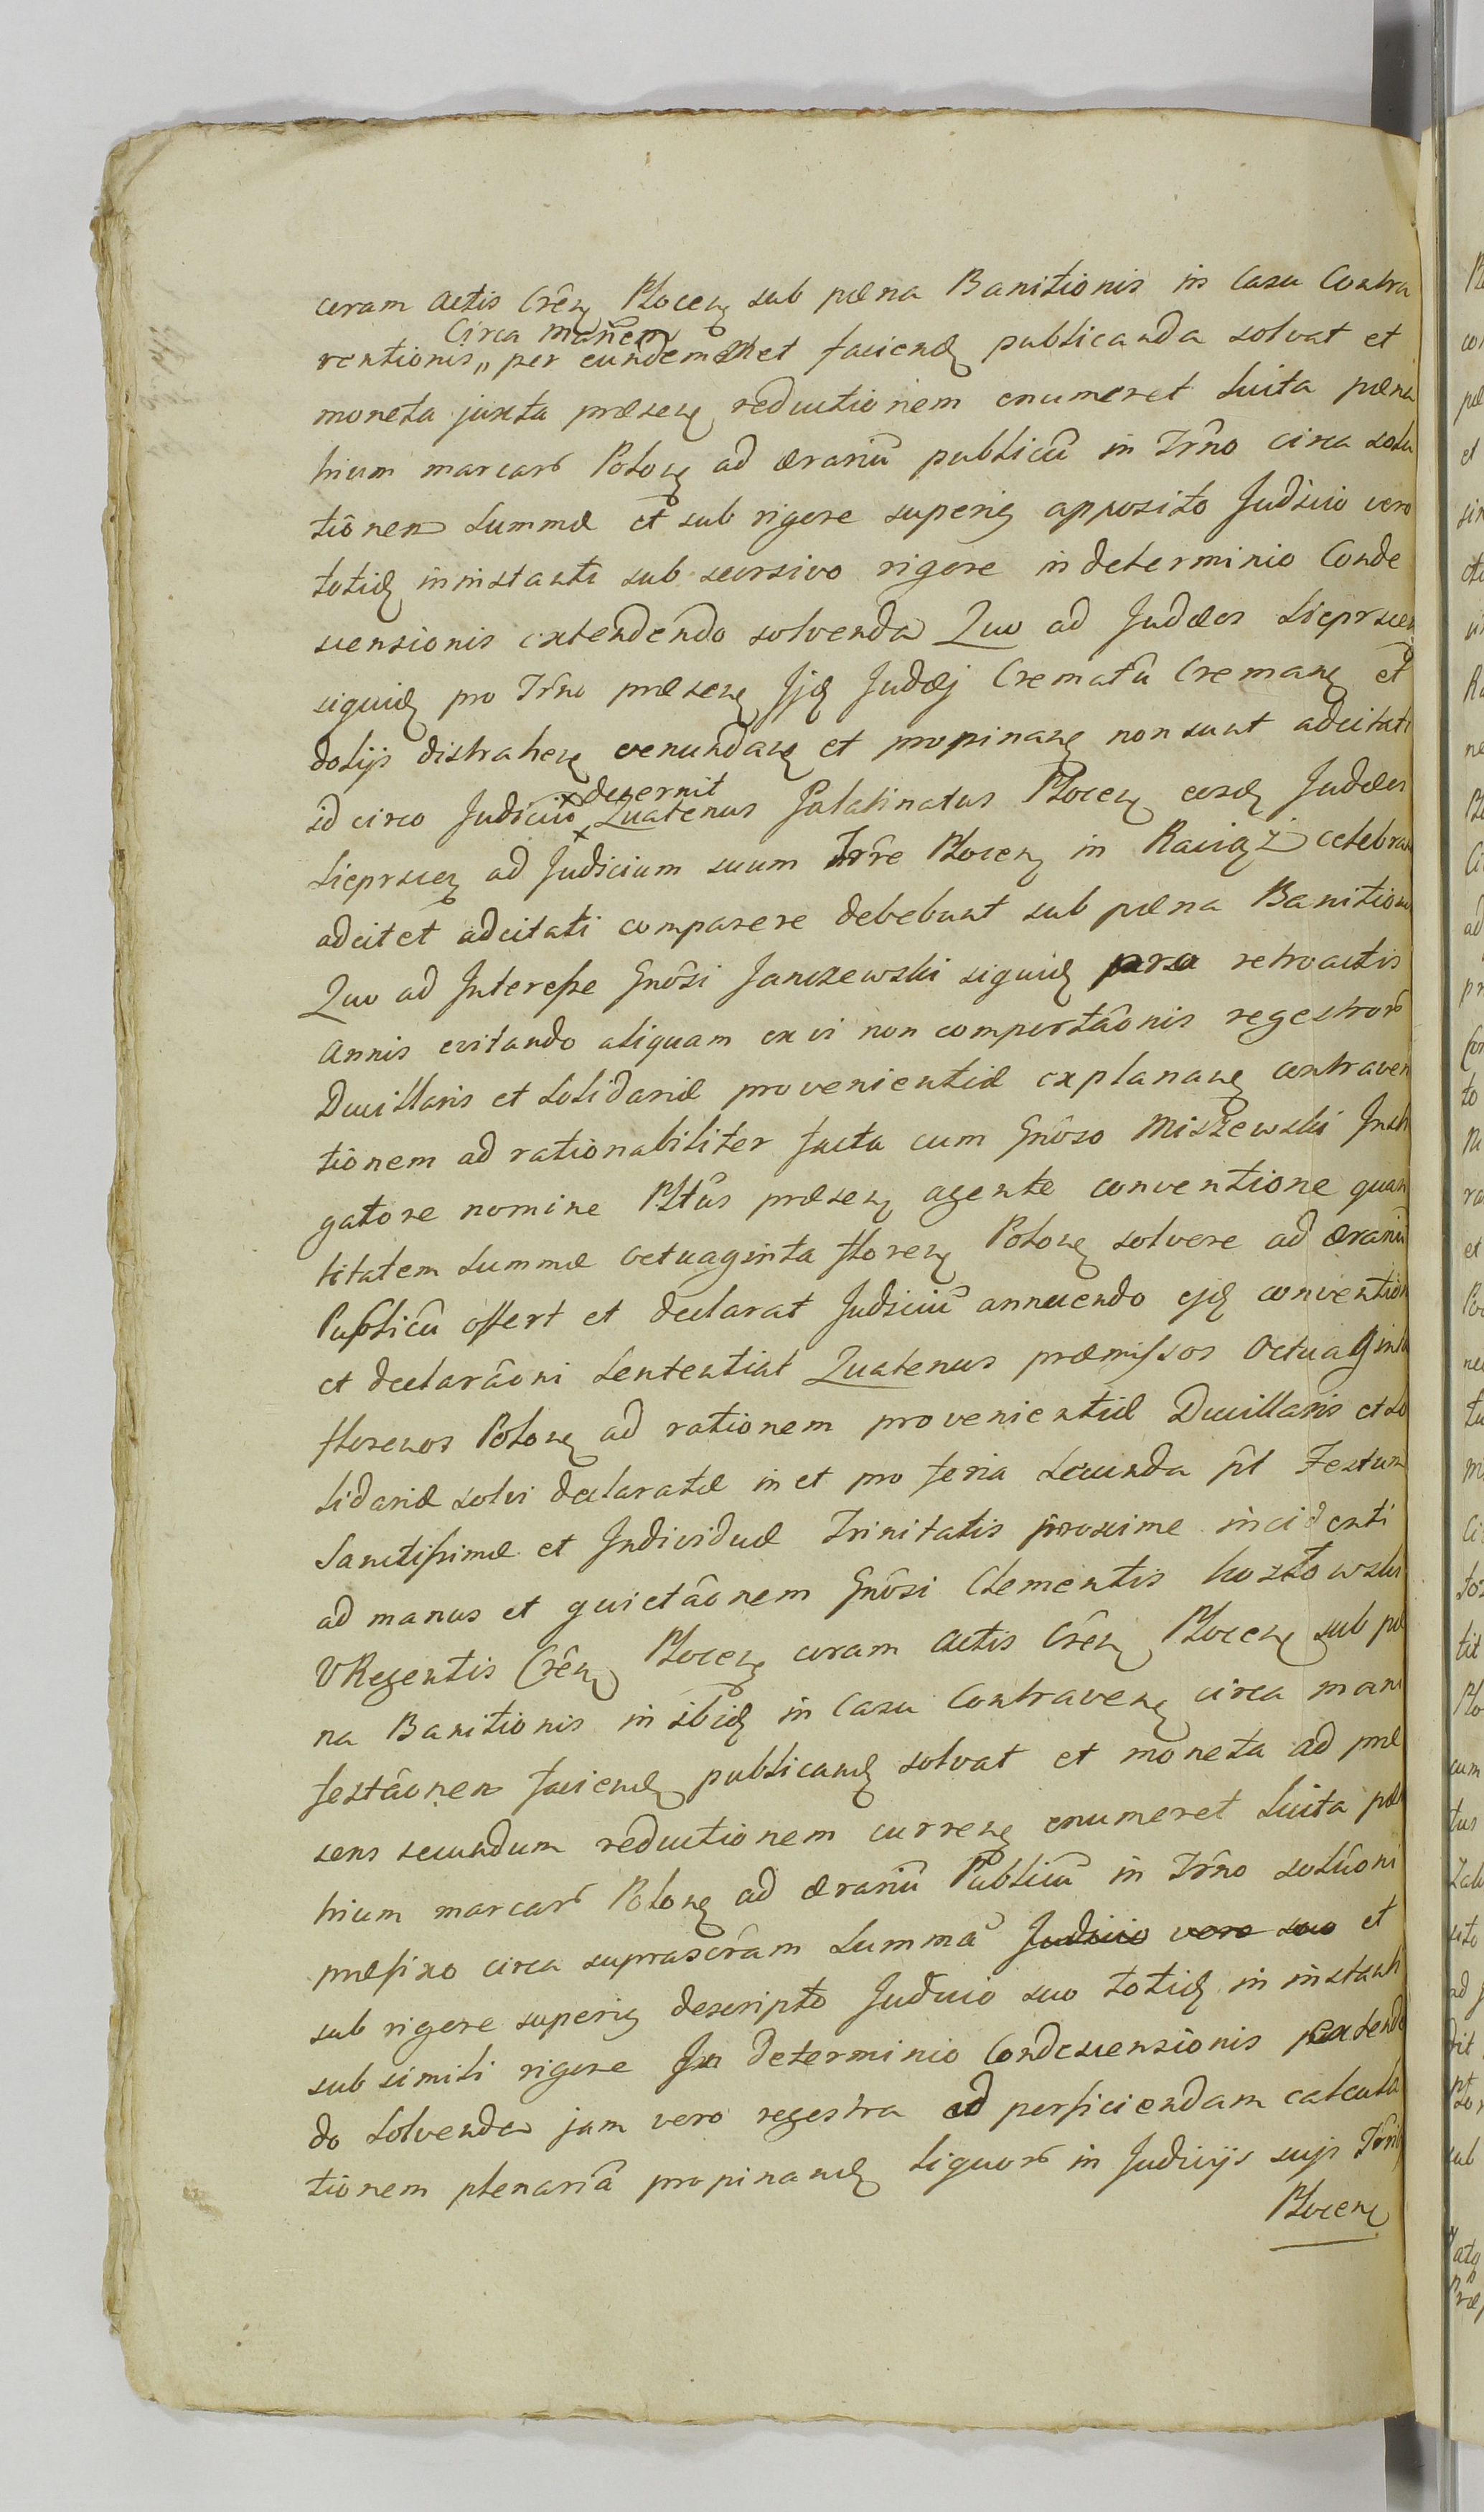 coram Actis Crên Plocen sub pæna Banitionis in Casu Contra
Circa manêm
ventionis,, per eundemmet faciend publicanda solvat et
moneta juxta præsen reductionem enumeret Luita pæna
trium marcar Polon ad ærariũ publicũ in Trno circa solu
tionem Summæ et sub rigore superiq apposito Judicio vero
totid in instanti sub seorsivo rigore in determinio Conde
scensionis extendendo solvenda Quo ad Judæos Sieprscen
siquid pro Trno præsen Jjd Judæj Crematũ Creman et
dolijs distrahen venundan et propinan non sunt adcitati
decernit
id circo Judiciũ Quatenus Palatinatus Plocen eosd Judæos
Sieprscen ad Judicium suum Trre Plocen in Raciąż celebran
adcitet adcitati comparere debebunt sub pæna Banitionis
Quo ad Interesse Gnôsi Janczewski siquid pro retroactis
Annis evitando aliquam ex vi non comportâonis regestror
Ducillaris et Solidariæ provenientiæ explanan contraven
tionem ad rationabiliter facta cum Gnôso Miszewski Insti
gatore nomine Pltûs præsen agente conventione quan
titatem Summæ octuaginta floren Polon solvere ad ærariũ
Publicũ offert et declarat Judiciũ annuendo ejd convention
et declarâoni Sententiat Quatenus præmissos Octuaginta
florenos Polon ad rationem provenientiæ Ducillaris et So
lidariæ solvi declaratæ in et pro feria Secunda pt Festum
Sanctissimæ et Individuæ Trinitatis proxime incidenti
ad manus et quietâonem Gnôsi Clementis Kozłowski
VRegentis Crên Plocen coram Actis Crên Plocen sub pæ
na Banitionis in ibid in Casu Contraven circa mani
festâonem faciend publicand solvat et moneta ad præ
sens secundum reductionem curren enumeret Luita pæn
trium marcar Polon ad ærariũ Publicũ in Trno solûoni
præfixo circa suprascrâm Summã Judicio vero suo et
sub rigore superiq descripto Judicio suo totid in instanti
sub simili rigore In determinio Condescensionis extenden
do Solvenda jam vero regestra ad perficiendam calcula
tionem plenariã propinand Liquor in Judicijs suis Trni
Plocen